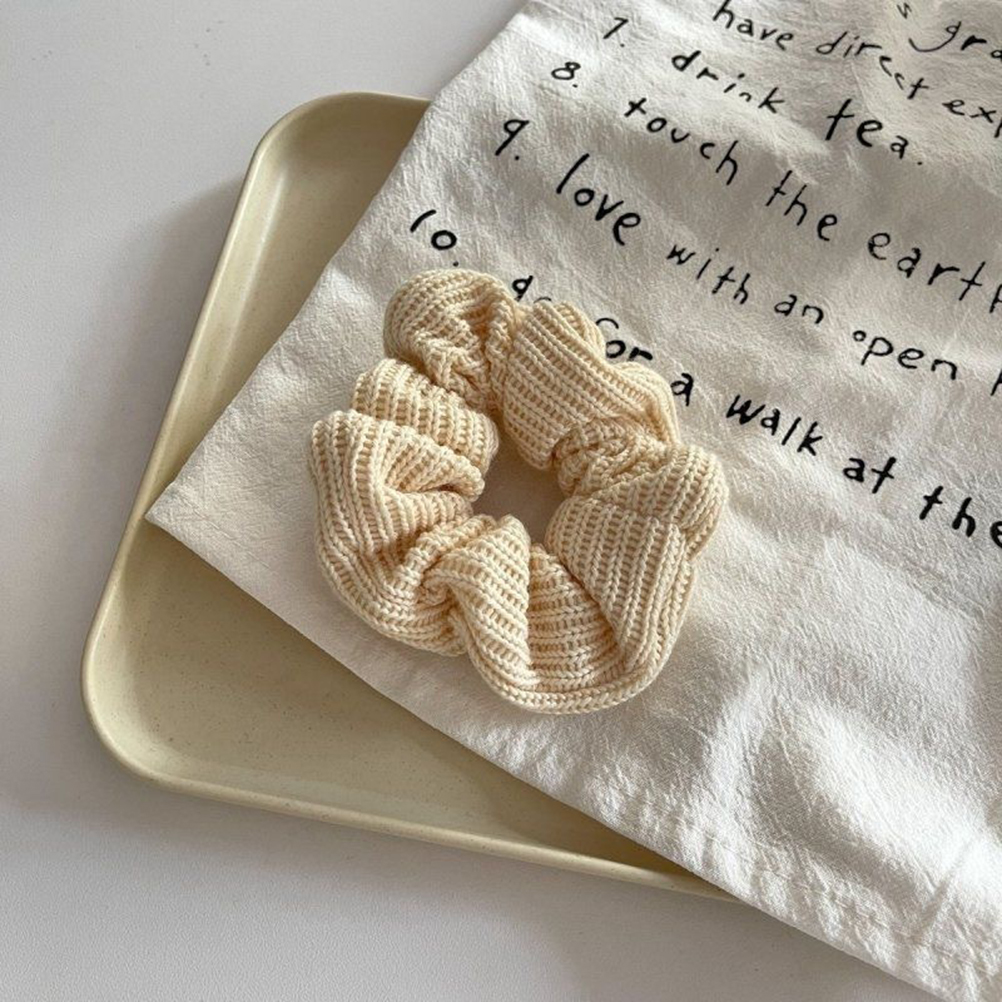 s gra
7. have direct ext
8. drink tea.
9. touch the earth
10. love with an open
for a walk at the